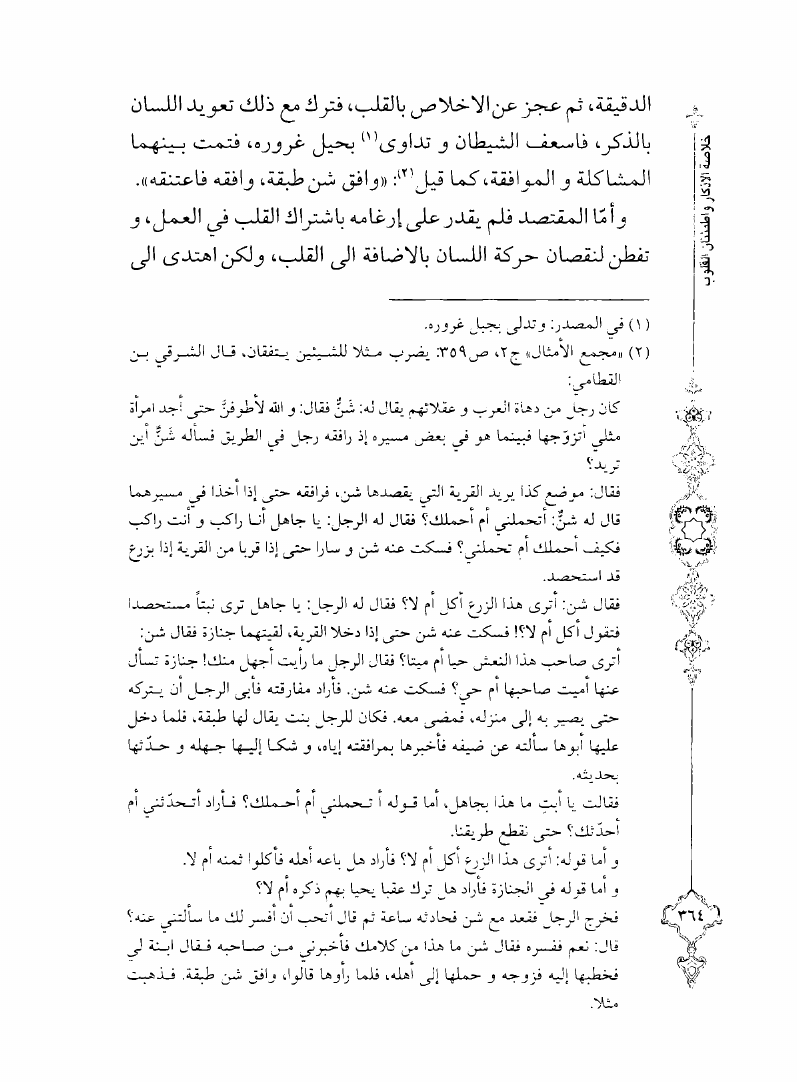 الدقيقة، ثم عجز عن الاخلاص بالقلب، فترك مع ذلك تعويد اللسان
بالذكر، فاسعف الشيطان و تداوى(١) بحيل غروره، فتمت بينهما
المشاكلة و الموافقة، كما قيل(٢): «وافق شن طبقة، وافقه فاعتنقه».
و أمّا المقتصد فلم يقدر على إرغامه باشتراك القلب في العمل، و
تفطن لنقصان حركة اللسان بالاضافة الى القلب، ولكن اهتدى الى
(١) في المصدر: و تدلى بحبل غروره.
(٢) «مجمع الأمثال» ج٢، ص٣٥٩: يضرب مثلا للشيئين يتفقان، قال الشرقي بن
القطامي:
كان رجل من دهاة العرب و عقلائهم يقال له: شَنٌّ فقال: و الله لأطوفنَّ حتى أجد امرأة
مثلي أتزوّجها فبينما هو في بعض مسيره إذ رافقه رجل في الطريق فسأله شَنٌّ أين
تريد؟
فقال: موضع كذا يريد القرية التي يقصدها شن، فرافقه حتى إذا أخذا في مسيرهما
قال له شنٌّ: أتحملني أم أحملك؟ فقال له الرجل: يا جاهل أنا راكب و أنت راكب
فكيف أحملك أم تحملني؟ فسكت عنه شن و سارا حتى إذا قربا من القرية إذا بزرع
قد استحصد.
فقال شن: أترى هذا الزرع أكل أم لا؟ فقال له الرجل: يا جاهل ترى نبتاً مستحصدا
فتقول أكل أم لا؟! فسكت عنه شن حتى إذا دخلا القرية، لقيتهما جنازة فقال شن:
أترى صاحب هذا النعش حيا أم ميتا؟ فقال الرجل ما رأيت أجهل منك! جنازة تسأل
عنها أميت صاحبها أم حي؟ فسكت عنه شن. فأراد مفارقته فأبى الرجل أن يتركه
حتى يصير به إلى منزله، فمضى معه. فكان للرجل بنت يقال لها طبقة، فلما دخل
عليها أبوها سألته عن ضيفه فأخبرها بمرافقته إياه، و شكا إليها جهله و حدّثها
بحديثه.
فقالت يا أبتِ ما هذا بجاهل، أما قوله أ تحملني أم أحملك؟ فأراد أتحدّثني أم
أحدّثك؟ حتى نقطع طريقنا.
و أما قوله: أترى هذا الزرع أكل أم لا؟ فأراد هل باعه أهله فأكلوا ثمنه أم لا.
و أما قوله في الجنازة فأراد هل ترك عقبا يحيا بهم ذكره أم لا؟
فخرج الرجل فقعد مع شن فحادثه ساعة ثم قال أتحب أن أفسر لك ما سألتني عنه؟
قال: نعم ففسره فقال شن ما هذا من كلامك فأخبرني من صاحبه فقال ابنة لي
فخطبها إليه فزوجه و حملها إلى أهله، فلما رأوها قالوا، وافق شن طبقة. فذهبت
مثلا.
خلاصة الاذكار و اطمئنان القلوب
٣٦٤